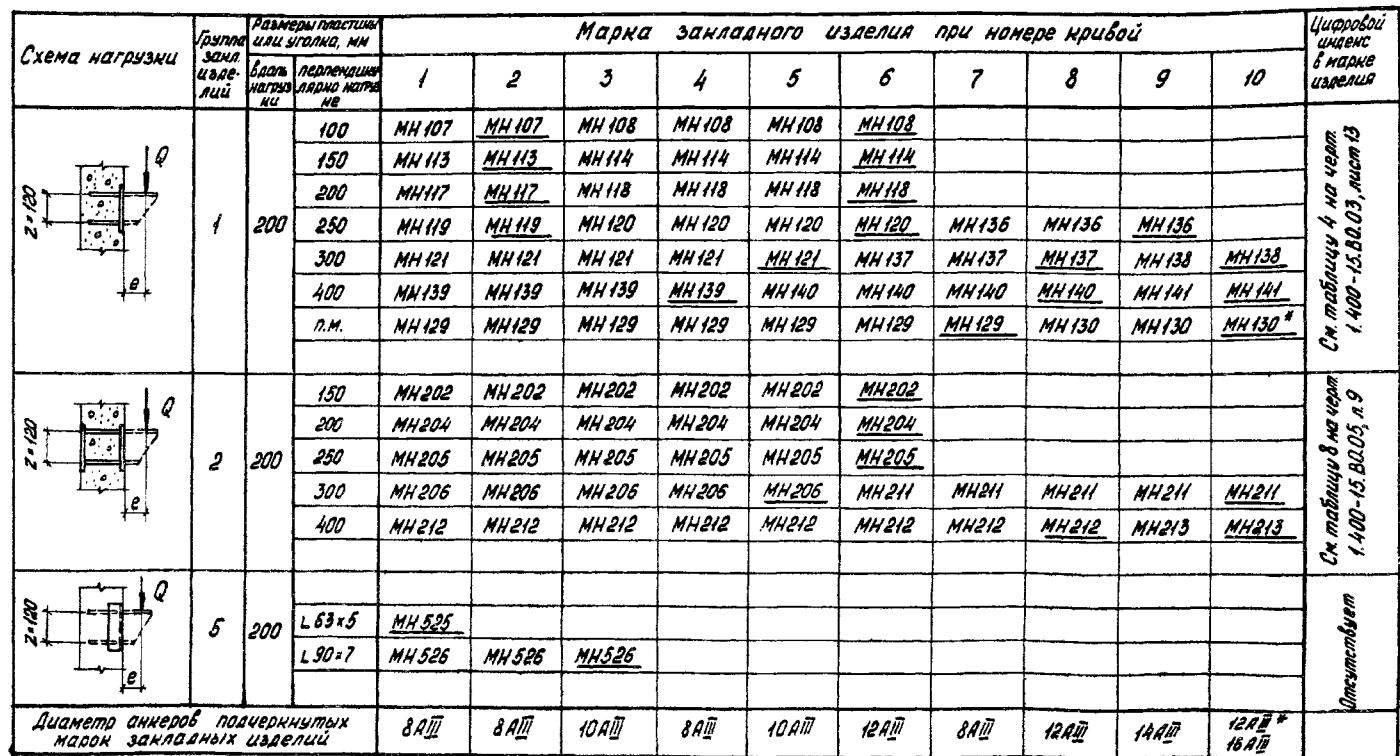 Схема нагрузки
Группа закл. изделий
Размеры пластины или уголка, мм
вдоль нагрузки
перпендикулярно нагрузке
Марка закладного изделия при номере кривой
1 2 3 4 5 6 7 8 9 10
Цифровой индекс в марке изделия
Q
z=120
e
1 200
100 МН107 МН107 МН108 МН108 МН108 МН108
150 МН113 МН113 МН114 МН114 МН114 МН114
200 МН117 МН117 МН118 МН118 МН118 МН118
250 МН119 МН119 МН120 МН120 МН120 МН120 МН136 МН136 МН136
300 МН121 МН121 МН121 МН121 МН121 МН137 МН137 МН137 МН138 МН138
400 МН139 МН139 МН139 МН139 МН140 МН140 МН140 МН140 МН141 МН141
п.м. МН129 МН129 МН129 МН129 МН129 МН129 МН129 МН130 МН130 МН130*
См. таблицу 4 на черт.
1.400-15.В0.03, лист 13
Q
z=120
e
2 200
150 МН202 МН202 МН202 МН202 МН202 МН202
200 МН204 МН204 МН204 МН204 МН204 МН204
250 МН205 МН205 МН205 МН205 МН205 МН205
300 МН206 МН206 МН206 МН206 МН206 МН211 МН211 МН211 МН211 МН211
400 МН212 МН212 МН212 МН212 МН212 МН212 МН212 МН212 МН213 МН213
См. таблицу 8 на черт.
1.400-15.В0.05, л.9
Q
z=120
e
5 200
L 63×5 МН525
L 90×7 МН526 МН526 МН526
Отсутствует
Диаметр анкеров подчеркнутых
марок закладных изделий
8АIII 8АIII 10АIII 8АIII 10АIII 12АIII 8АIII 12АIII 14АIII 12АIII*
16АIII